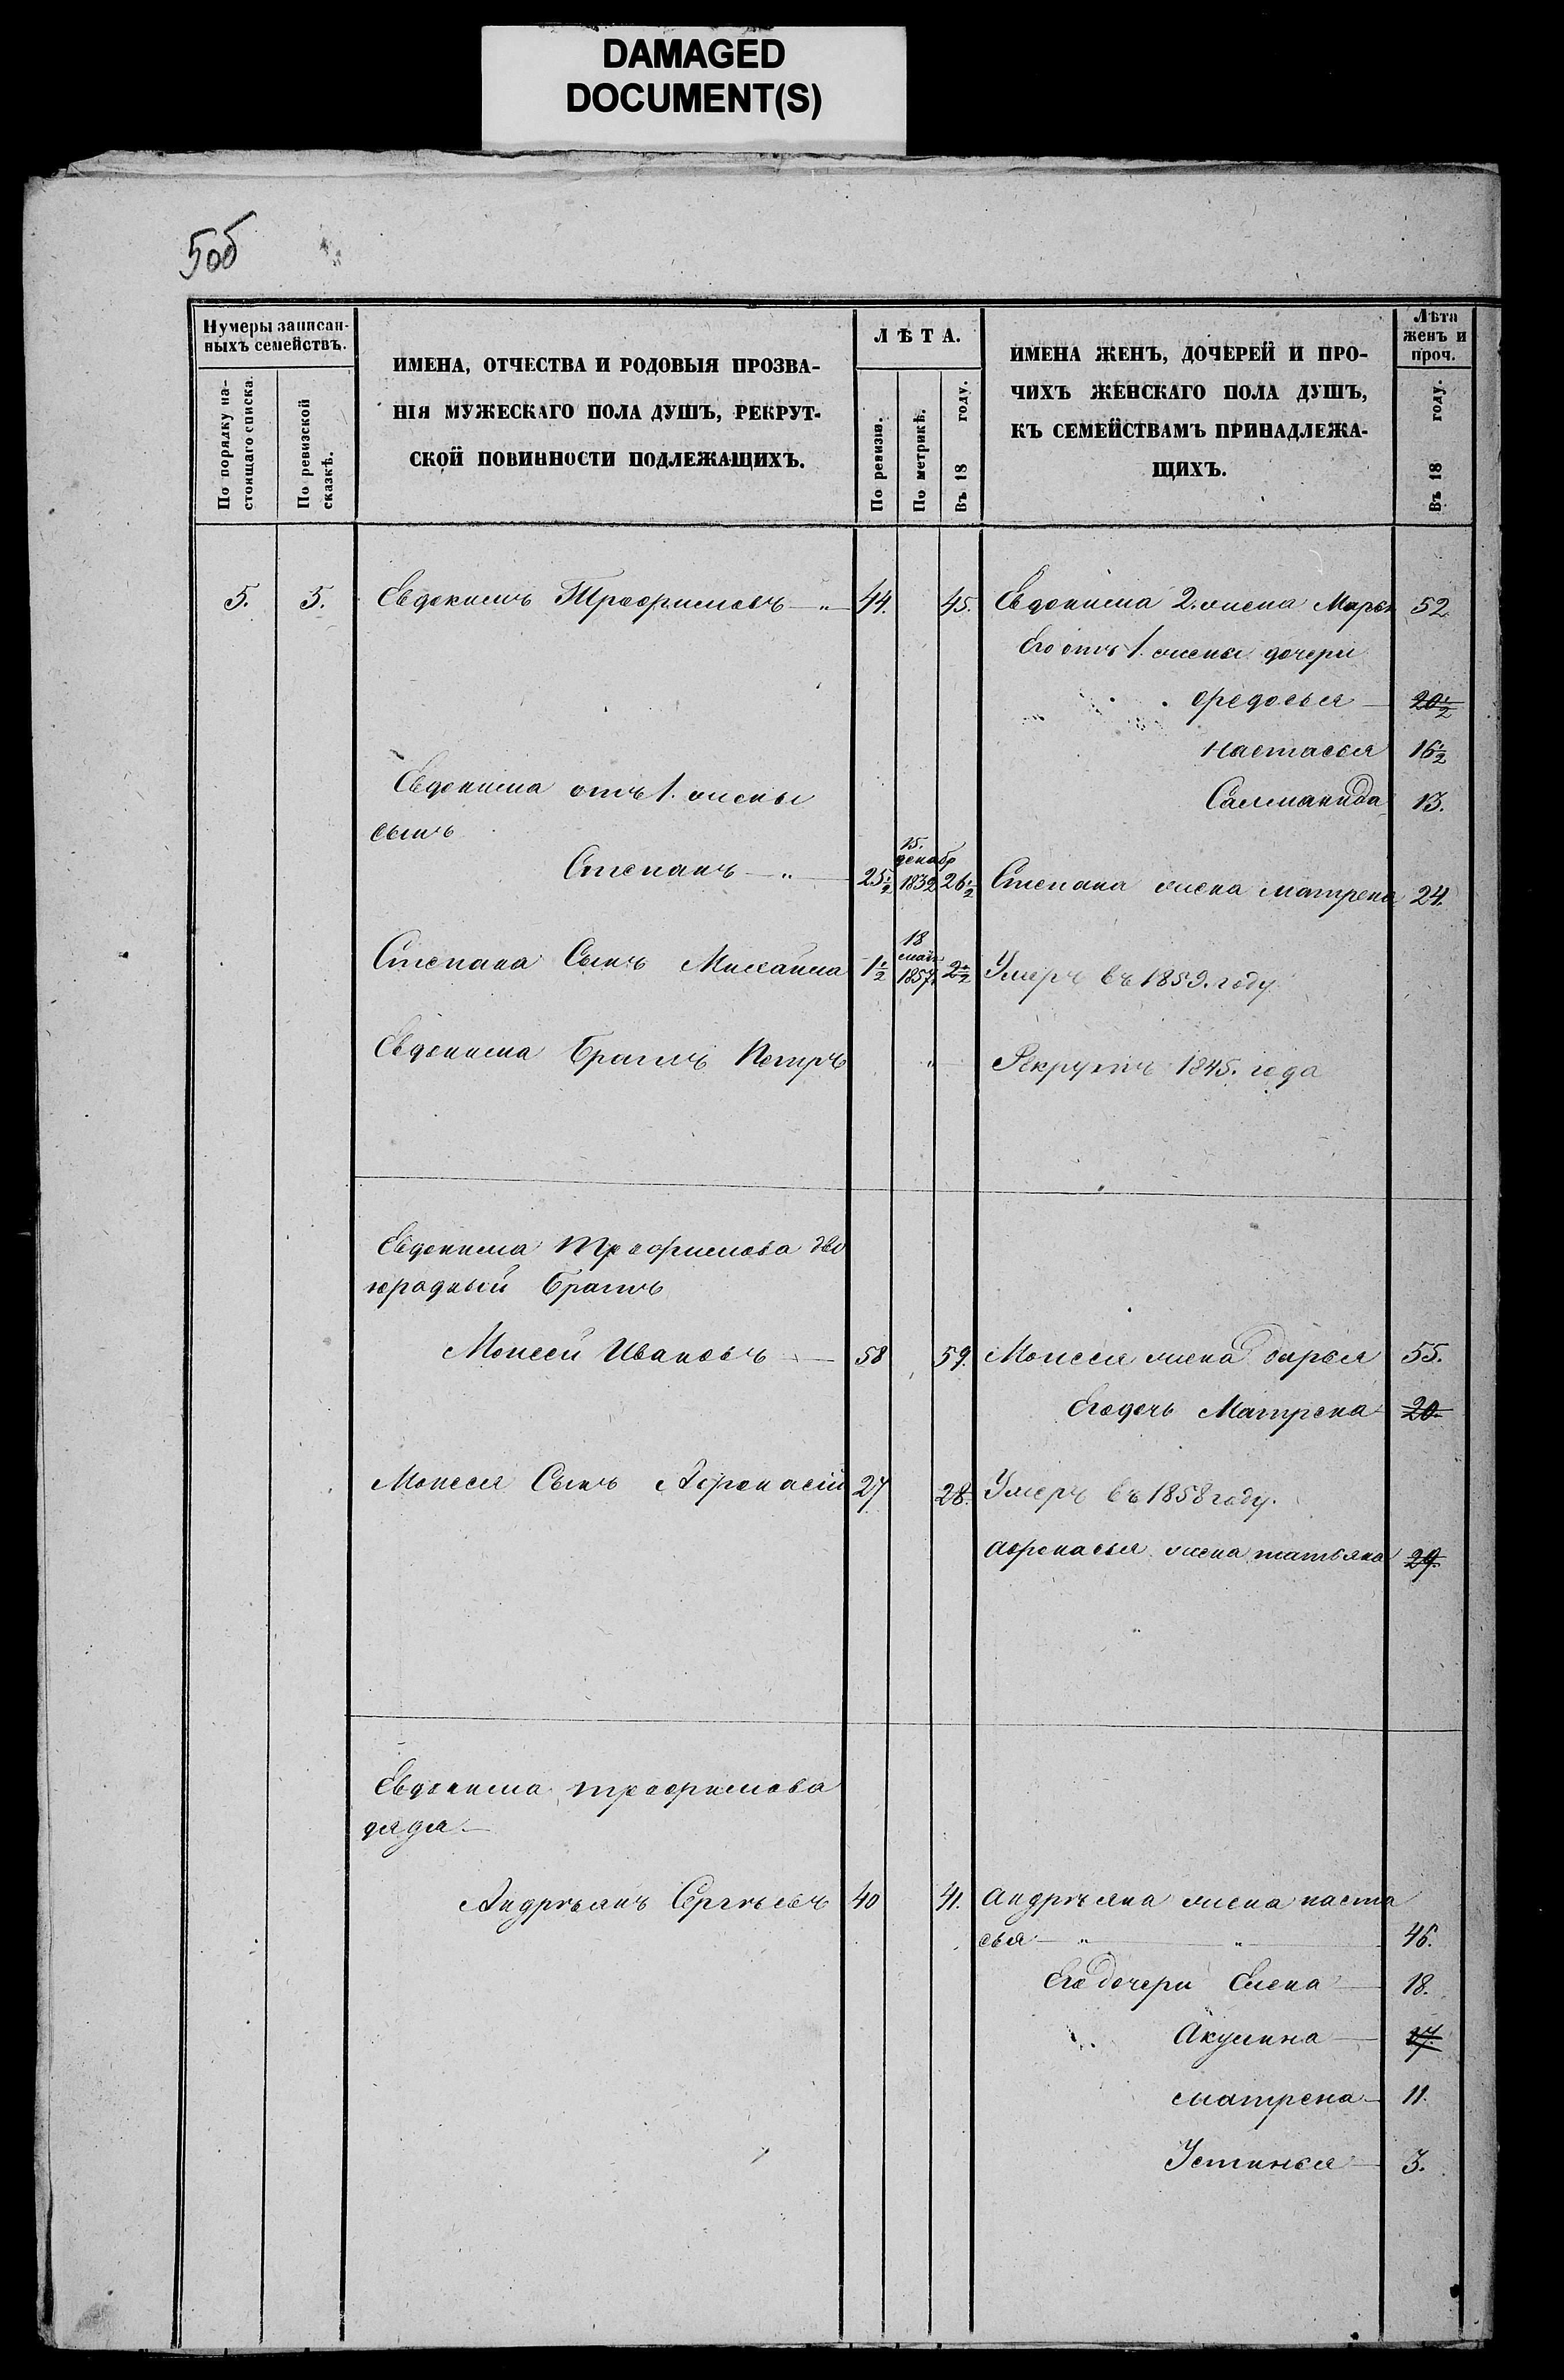 DAMAGED
DOCUMENT(S)
5об
Нумеры записан-
ныхъ семействъ.
По порядку на-
стоящаго списка.
По ревизской
сказкѣ.
ИМЕНА, ОТЧЕСТВА И РОДОВЫЯ ПРОЗВА-
НІЯ МУЖЕСКАГО ПОЛА ДУШЪ, РЕКРУТ-
СКОЙ ПОВИННОСТИ ПОДЛЕЖАЩИХЪ.
ЛѢТА.
По ревизіи.
По метрикѣ.
Въ 18 году.
ИМЕНА ЖЕНЪ, ДОЧЕРЕЙ И ПРО-
ЧИХЪ ЖЕНСКАГО ПОЛА ДУШЪ,
КЪ СЕМЕЙСТВАМЪ ПРИНАДЛЕЖА-
ЩИХЪ.
Лѣта
женъ и
проч.
Въ 18 году.
5. 5. Евдокимъ Трофимовъ — „ — 44. 45. Евдокима 2. жена Марья 52
Его отъ 1. жены дочери
Федосья — 20½
Настасья 16½
Евдокима отъ 1. жены
Саломанида 13.
сынъ
15.
декабр
Степанъ — „ — 25½ 1832 26½ Степана жена матрена 24.
18
маія
Степана Сынъ Михайла 1½ 1857. 2½ Умеръ въ 1859. году
Евдокима Братъ Петръ „ — Рекрутъ 1845. года
Евдокима Трофимова дво
юродный Братъ
Моисей Ивановъ — 58 59. Моисея жена дарья 55.
Его дочь Матрена 20.
Моисея Сынъ Афонасій 27 28. Умеръ въ 1858 году.
афонасья жена татьяна 29.
Евдокима трофимова
дядя —
Андреянъ Сергѣевъ 40 41. андрѣяна жена наста
сья — „ — „ — 46.
Его дочери Елена — 18.
Акулина — 17.
матрена — 11.
Устинья — 3.